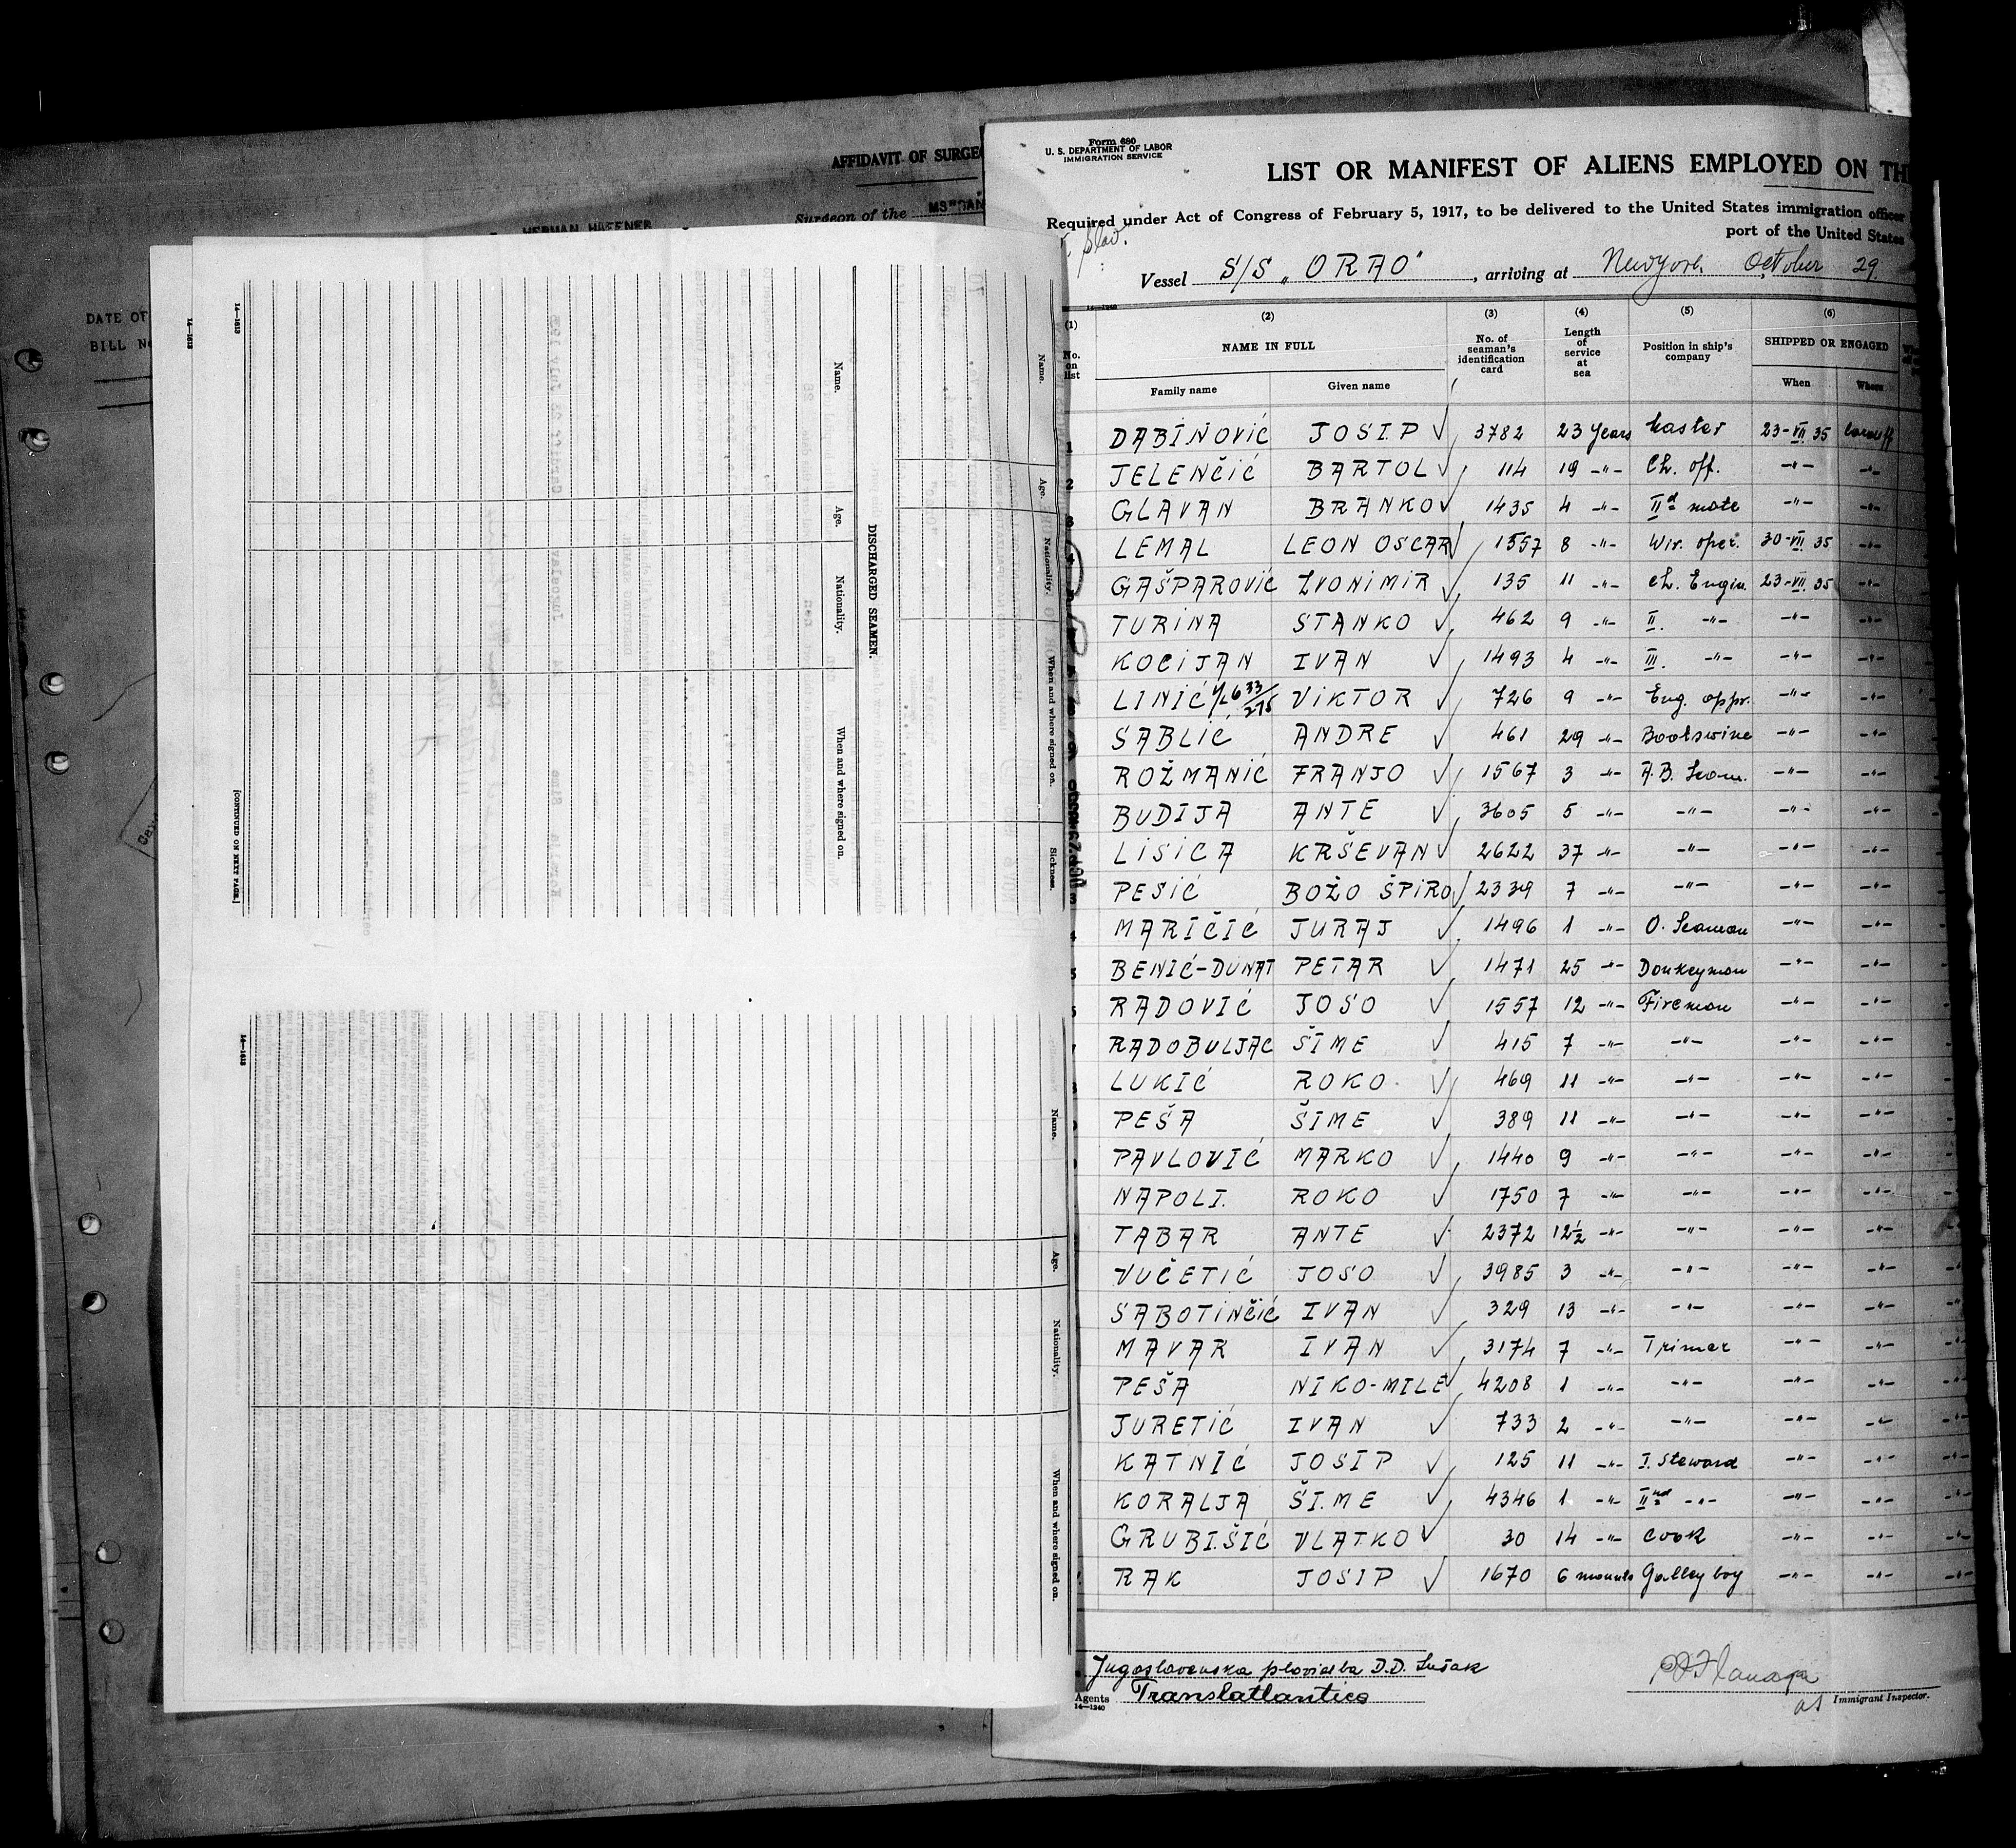 AFFIDAVIT OF SURGE
Surgeon of the
HERMAN HAFENER
DATE OF
BILL No
14—1613
14—1613
[CONTINUED ON NEXT PAGE.]
Name. Age. Nationality. When and where signed on.
DISCHARGED SEAMEN.
Name. Age. Nationality. When and where signed on. Sickness.
14—1613
Name. Age. Nationality. When and where signed on.
Form 680
U. S. DEPARTMENT OF LABOR
IMMIGRATION SERVICE
LIST OR MANIFEST OF ALIENS EMPLOYED ON TH
Required under Act of Congress of February 5, 1917, to be delivered to the United States immigration officer
port of the United States
Vessel S/S „ORAO", arriving at New York October 29
14—1240
(1) (2) (3) (4) (5) (6)
No. on list NAME IN FULL No. of seaman's identification card Length of service at sea Position in ship's company SHIPPED OR ENGAGED
Family name Given name When Where
1 DABINOVIĆ JOSIP 3782 23 years Master 23-VII.35 Cardiff
2 JELENČIĆ BARTOL 114 19 -"- Ch. off. -"- -"-
3 GLAVAN BRANKO 1435 4 -"- IInd mate -"- -"-
4 LEMAL LEON OSCAR 1557 8 -"- Wir. oper. 30-VII.35 -"-
GAŠPAROVIĆ ZVONIMIR 135 11 -"- Ch. Engin. 23-VII.35 -"-
TURINA STANKO 462 9 -"- II. -"- -"- -"-
KOCIJAN IVAN 1493 4 -"- III. -"- -"- -"-
LINIĆ VIKTOR 726 9 -"- Eng. appr. -"- -"-
SABLIĆ ANDRE 461 29 -"- Bootswine -"- -"-
ROŽMANIĆ FRANJO 1567 3 -"- A.B. Seam. -"- -"-
BUDIJA ANTE 3605 5 -"- -"- -"- -"-
LISICA KRŠEVAN 2622 37 -"- -"- -"- -"-
PESIĆ BOŽO ŠPIRO 2339 7 -"- -"- -"- -"-
MARIČIĆ JURAJ 1496 1 -"- O. Seaman -"- -"-
BENIĆ-DUNAT PETAR 1471 25 -"- Donkeyman -"- -"-
RADOVIĆ JOSO 1557 12 -"- Fireman -"- -"-
RADOBULJAC ŠIME 415 7 -"- -"- -"- -"-
LUKIĆ ROKO 469 11 -"- -"- -"- -"-
PEŠA ŠIME 389 11 -"- -"- -"- -"-
PAVLOVIĆ MARKO 1440 9 -"- -"- -"- -"-
NAPOLI. ROKO 1750 7 -"- -"- -"- -"-
TABAR ANTE 2372 12½ -"- -"- -"- -"-
VUČETIĆ JOSO 3985 3 -"- -"- -"- -"-
SABOTINČIĆ IVAN 329 13 -"- -"- -"- -"-
MAVAR IVAN 3174 7 -"- Trimer -"- -"-
PEŠA NIKO-MILE 4208 1 -"- -"- -"- -"-
JURETIĆ IVAN 733 2 -"- -"- -"- -"-
KATNIĆ JOSIP 125 11 -"- I. Steward -"- -"-
KORALJA ŠIME 4346 1 -"- IInd -"- -"- -"-
GRUBIŠIĆ VLATKO 30 14 -"- Cook -"- -"-
RAK JOSIP 1670 6 mounts Galley boy -"- -"-
Jugoslavenska plovidba D.D. Sušak
Agents Translatlantica
14—1240
Immigrant Inspector.